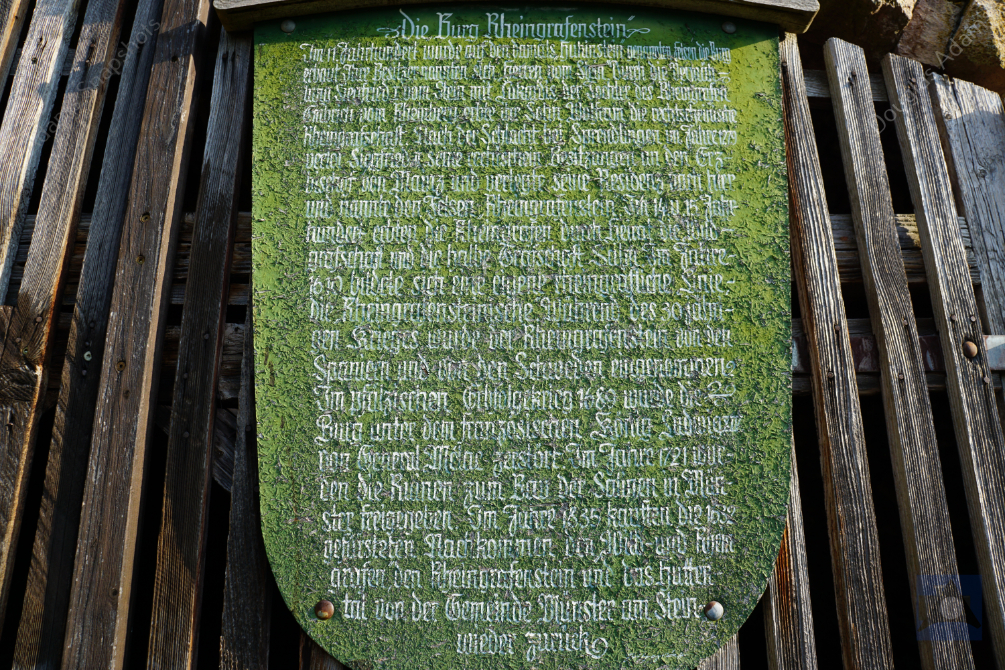 Die Burg Rheingrafenstein
Im 11 Jahrhundert wurde auf den damals genannten die Burg
erbaut Ihre Besitzer nannten sich Herren vom Stein Durch die
vom Stein mit Lukardis der Tochter des Rheingrafen
vom Rheinberg erbte der Sohn Wolfram die
Rheingrafschaft Nach der Schlacht bei Sprendlingen im Jahre
verlor Siegfried seine Besitzungen an den Erz
bischof von Mainz und verlegte seine Residenz nach hier
und nannte den Felsen Rheingrafenstein Im 14 u 15 Jahr
hundert erbten die Rheingrafen durch Heirat die Wild
grafschaft und die halbe Grafschaft Salm Im Jahre
bildete sich eine eigene rheingräfliche Linie
die Rheingrafensteinische Während des 30 jähri
gen Krieges wurde der Rheingrafenstein von den
Spaniern und von den Schweden eingenommen
Im pfälzischen Erbfolgekrieg 1689 wurde die
Burg unter dem französischen König
von General Melac zerstört Im Jahre 1721 wur
den die Ruinen zum Bau der Salinen in Mün
ster freigegeben Im Jahre kauften die
gefürsteten Nachkommen der Wild-und Rhein
grafen den Rheingrafenstein und das Hutten
tal von der Gemeinde Münster am Stein
wieder zurück